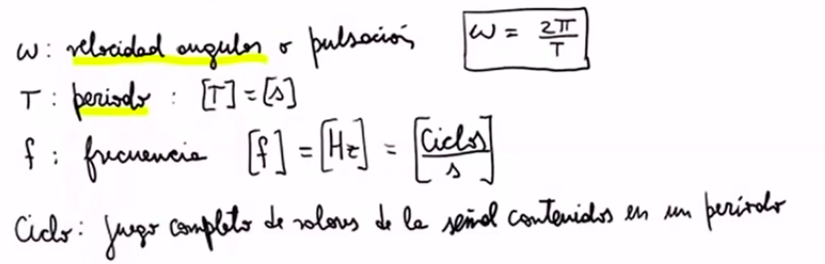 ω: velocidad angular o pulsación ω = 2π/T
T: periodo : [T] = [s]
f: frecuencia [f] = [Hz] = [Ciclos/s]
Ciclo: juego completo de valores de la señal contenidos en un periodo